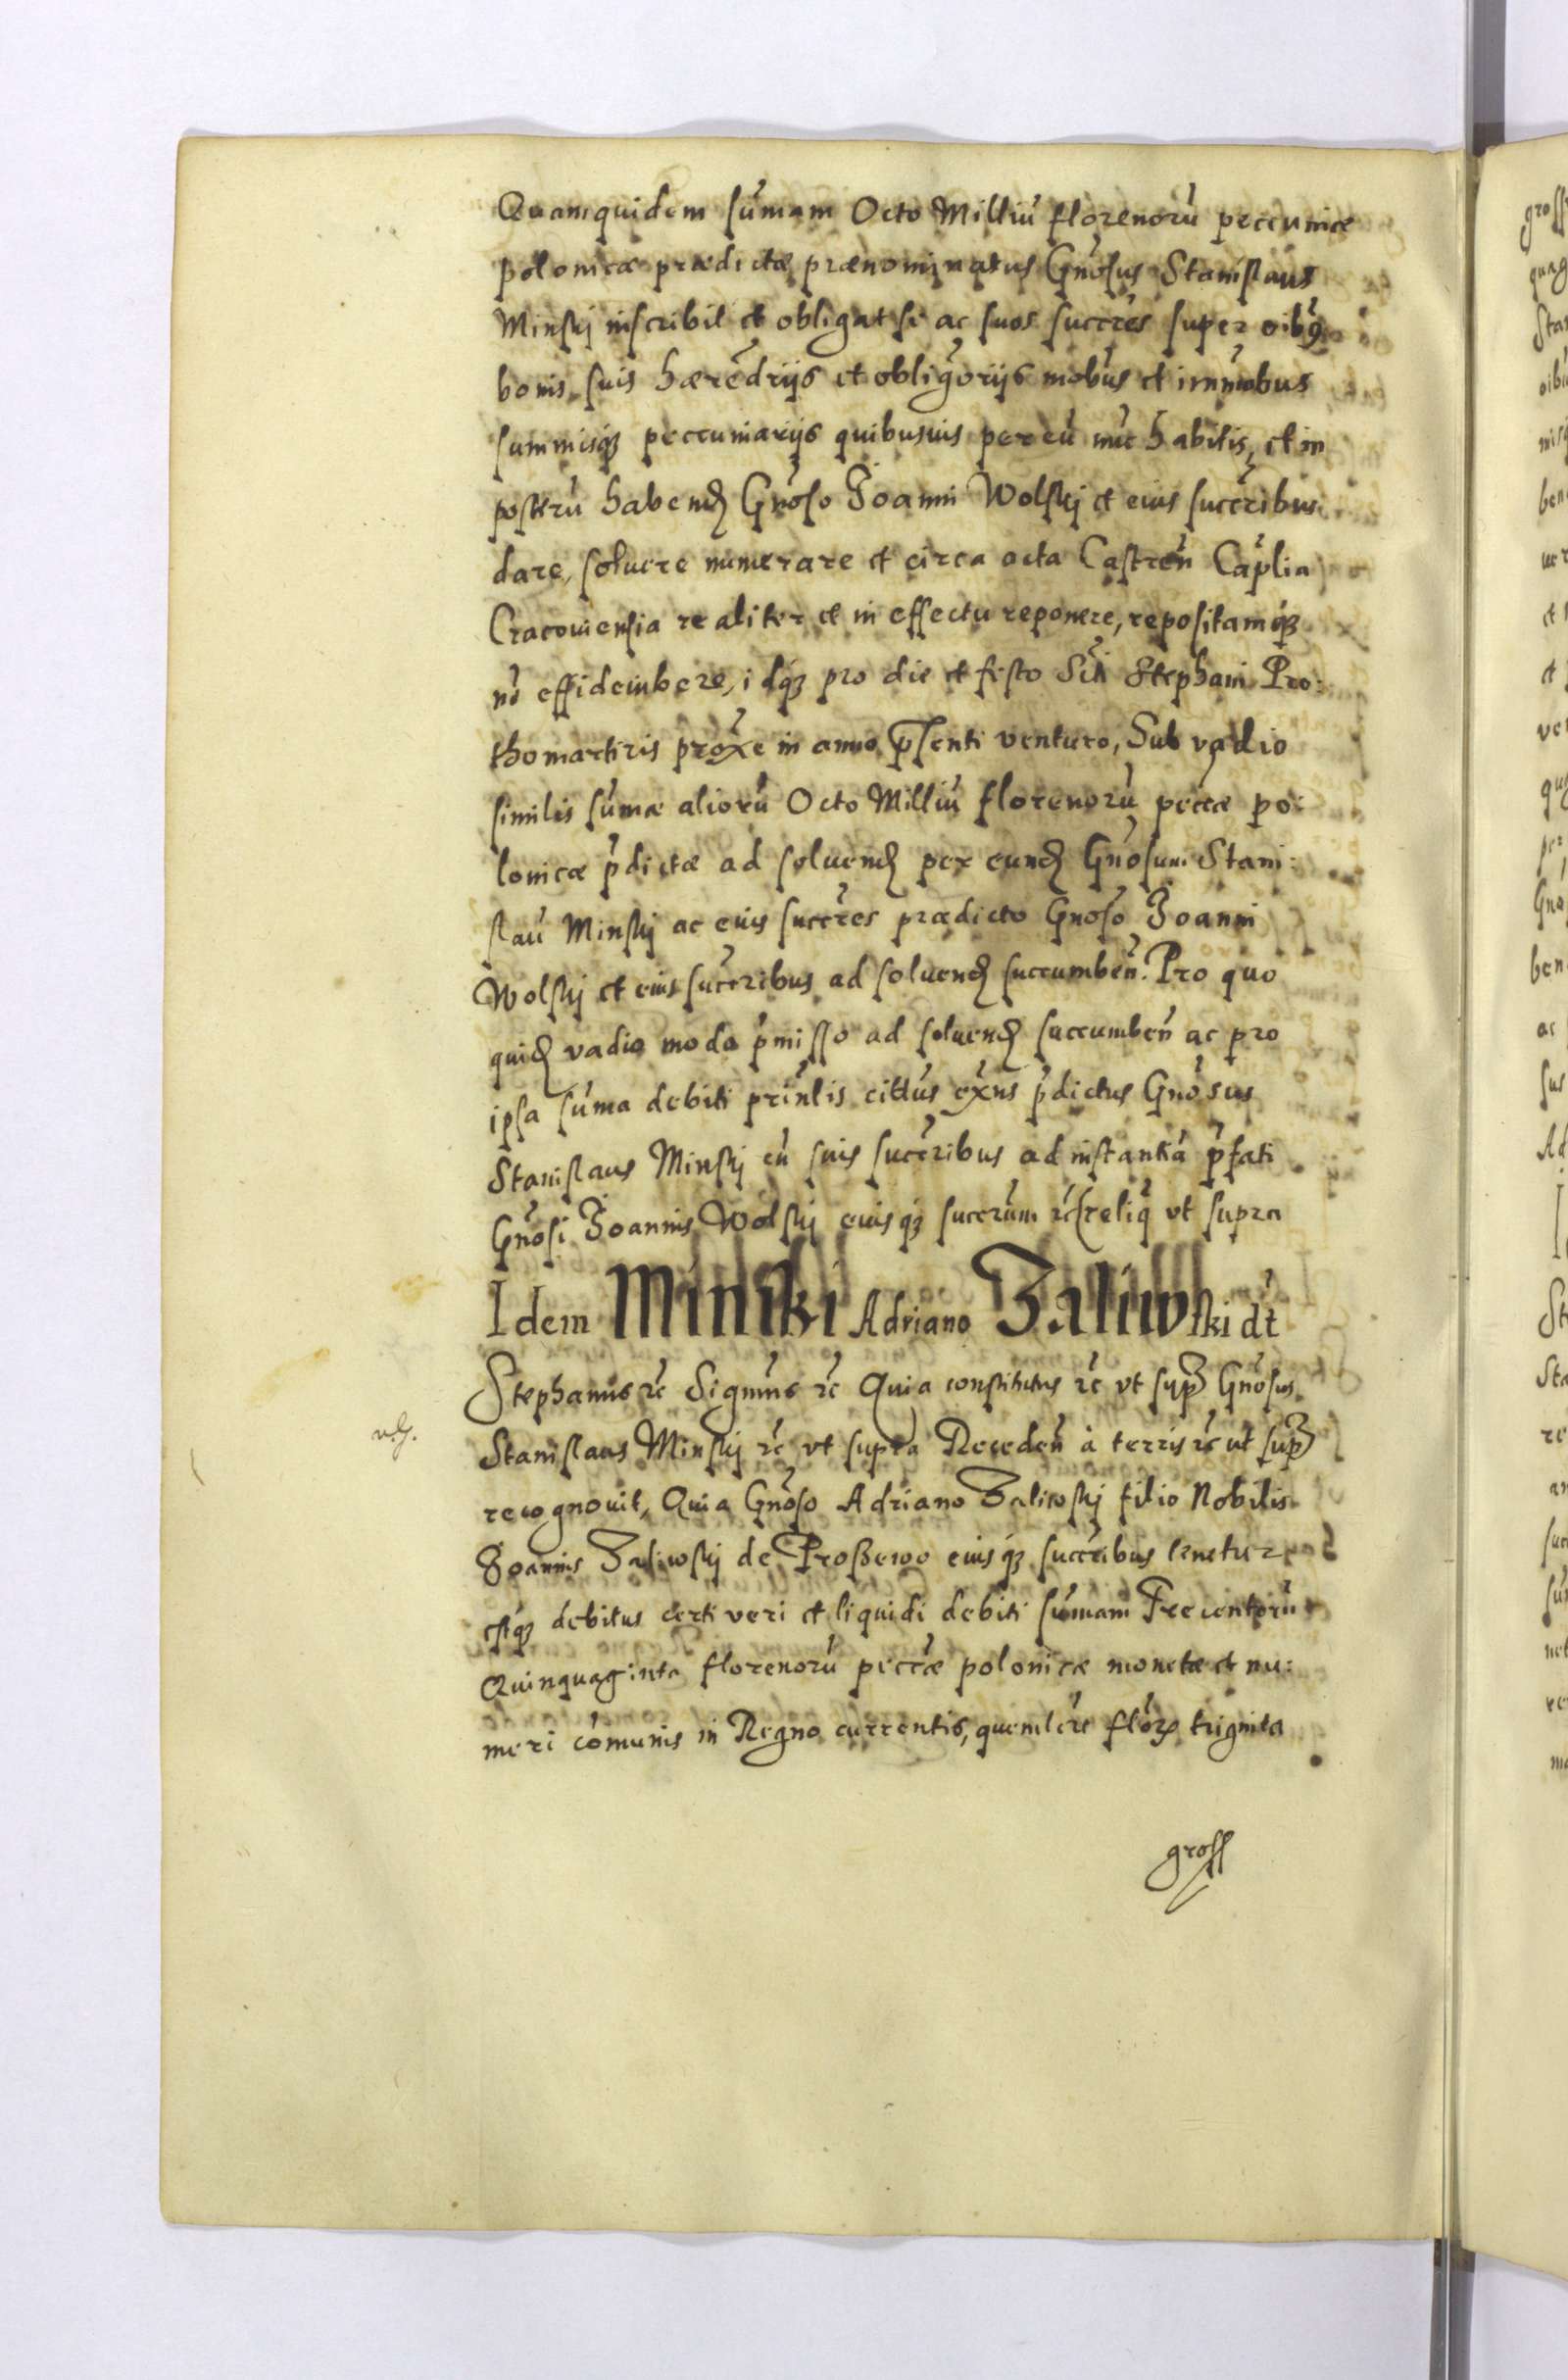 Quamquidem sum̃am Octo Milliũ florenorũ peccuniæ
polonicæ prædictæ prænominatus Gñosus Stanislaus
Minskj inscribit et obligat se ac suos succr̃es super oĩbq
bonis suis hæred̃rijs et obligõrijs mob̃us et immob̃us
summisq́ʒ peccuniarijs quibusuis per eũ nũc habitis, et in
posterũ habend̃ Gñoso Joanni Wolskj et eius succr̃ibus
dare, soluere numerare et circa acta Castreñ Cap̃lia
Cracouiensia realiter et in effectu reponere, repositamq́ʒ
nõ effideiubere, idq́ʒ pro die et festo Sc̃i Stephani Pro:
thomartiris prox̃e in anno p̃senti venturo, Sub vadio
similis sum̃æ aliorũ Octo Milliũ florenorũ pecc̃æ po:
lonicæ p̃dictæ ad soluend̃ per eund̃ Gñosum Stani:
slaũ Minskj ac eius succr̃es prædicto Gñoso Joanni
Wolskj et eius succr̃ibus ad soluend̃ succumbeñ. Pro quo
quid̃ vadio modo p̃misso ad soluend̃ succumbeñ ac pro
ipsa sum̃a debiti prin̄lis citt̃us ex̃ns p̃dictus Gñosus
Stanislaus Minskj cũ suis succr̃ibus ad instantiã p̃fati
Gñosi Joannis Wolskj eiusq́ʒ succr̃um rc̃ reliq̃ vt supra
Idem Minski Adriano Zaliwski dt̃
Stephanus rc̃ Signm̃s rc̃ Quia constitutus rc̃ vt sup̃ Gñosus
Stanislaus Minskj rc̃ vt supra Recedeñ à terris rc̃ ut sup̃
recognouit, Quia Gñoso Adriano Zaliwskj filio Nobilis
Joannis Zaliwskj de Proßewo eiusq́ʒ succr̃ibus tenetur
estq́ʒ debitus certi veri et liquidi debiti sum̃am Trecentorũ
Quinquaginta florenorũ pecc̃æ polonicæ monetæ et nu:
meri com̃unis in Regno currentis, quemlr̃e flor̃ʒ triginta
gross